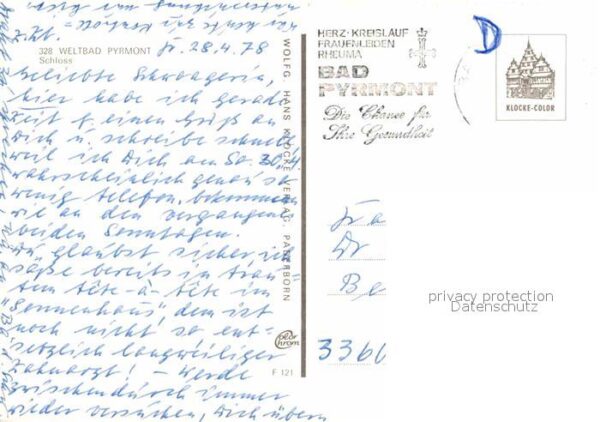 328 WELTBAD PYRMONT
Schloss
Fr. 28.4.78
Geliebte Schwägerin,
hier habe ich gerade
Zeit f. einen Gruß an
Dich u. schreibe schnell
weil ich Dich am So. 30.4.
wahrscheinlich genau so
wenig telefon. bekommen
wie an den vergangenen
beiden Sonntagen.
Du glaubst sicher, ich
säße bereits in trau=
tem tête-à-tête im
"Sonnenhaus", dem ist
noch nicht so ent=
setzlich langweiliger
Zahnarzt! - Werde
zwischendurch immer
wieder versuchen, Dich übern
WOLFG. HANS KLOCKE VERLAG, PADERBORN
Color
Chrom
F 121
HERZ-KREISLAUF
FRAUENLEIDEN
RHEUMA
BAD
PYRMONT
Die Chance für
Ihre Gesundheit
D
KLOCKE-COLOR
Dr
Be
3360
privacy protection
Datenschutz